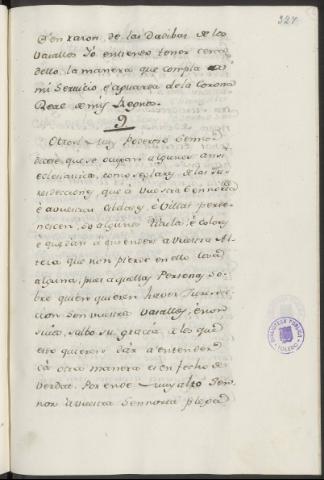 327
E en razon de las Dadibas de los
Vasallos Yo entiendo tener cerca
dello la manera que compla à
mi Servicio, è aguarda de la Corona
Real de mis Regnos.
9
Otrosi, muy Poderoso Señor
decir, que se ocupan algunos ansi
eclesianicos, como seglares de las Ju-
risdecciones, que à vuestra Señoria
è à vuestras Cibdades, è Villas perte-
necen, so algunos titulos, è colores
è que dan à entender à vuestra Al-
teza que non pierde en ello cosa
alguna, pues aquellas Personas so-
bre quien quieren haver Jurisdic-
cion son vuestros Vasallos, è non
suios, salbo su gracia à los que
esto quieren dar à entender
cà otra manera es en fecho de
verdat. Por ende muy alto Sen-
nor à vuestra Sennoria plega
BIBLIOTECA PUBLICA
TOLEDO